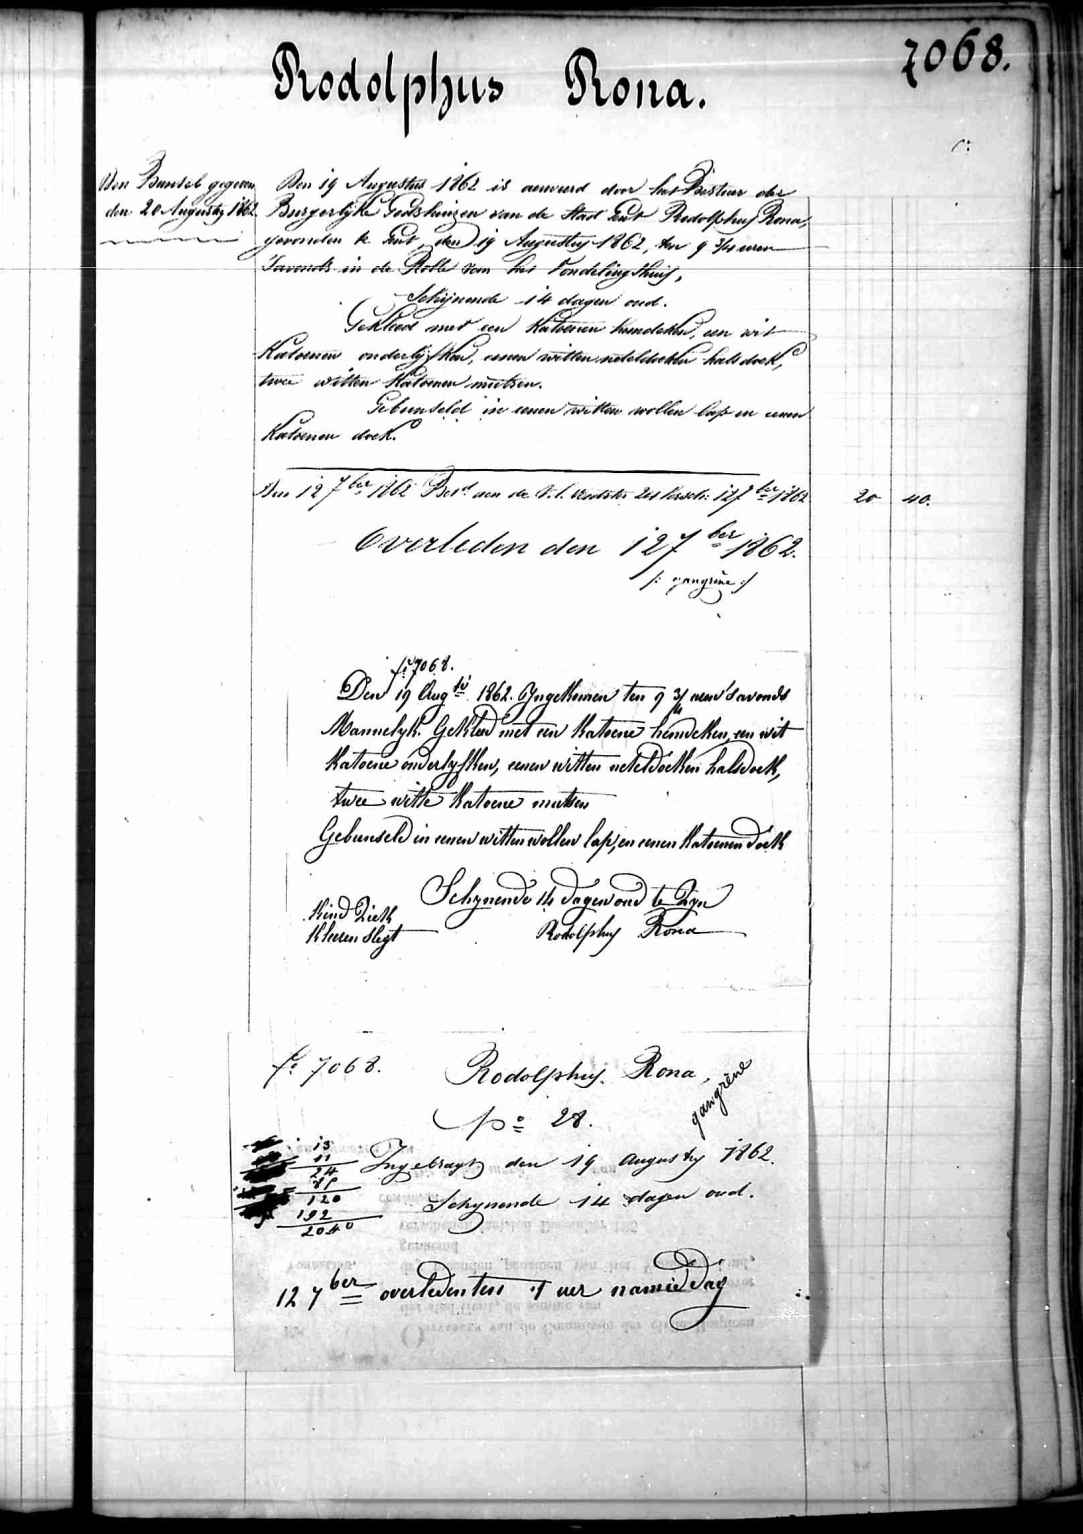 7068.
Rodolphus Rona.
Den Bunsel gegeven
den 20 Augusty 1862.
Den 19 Augustus 1862 is aenveerd door het Bestuer der
Burgerlyke Godshuizen van de Stad Gent Rodolphus Rona,
gevonden te Gent, den 19 Augustus 1862, ten 9 3/4 uren
'savonds in de Rolle van het Vondelingshuis,
Schijnende 14 dagen oud.
Gekleed met een katoenen hemdeken, een wit
katoenen onderlyfken, eenen witten neteldoeken halsdoek,
twee witten katoenen mutsen.
Gebunseld in eenen witten wollen lap en eenen
katoenen doek.
Den 12 7ber 1862 aen de 12 7ber 1862 20 40.
Overleden den 12 7ber 1862.
/: gangrène :/
f° 7068.
Den 19 Augti 1862. Ingekomen ten 9 3/4 uren 'savonds
Mannelyk. Gekleed met een katoene hemdeken, een wit
katoene onderlyfken, eenen witten neteldoeken halsdoek,
twee witte katoene mutsen
Gebunseld in eenen witten wollen lap, en eenen katoenen doek
Schynende 14 dagen oud te zyn
Kind Ziek
Kleeren slegt
Rodolphus Rona
f° 7068. Rodolphus Rona,
gangrène
p° 28.
13
11
24
85
120
192
2040
Ingebragt den 19 Augusty 1862.
Schynende 14 dagen oud.
12 7ber overleden ten 1 uer namiddag